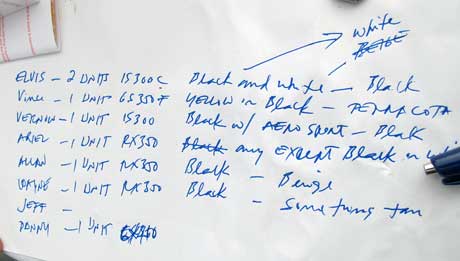 white
ELVIS - 2 UNITS IS300C Black and white - Black
Vince - 1 UNIT GS350F YELLOW in Black - TERRACOTA
VERNON - 1 UNIT IS300 Black w/ AERO SPORT - Black
ARIEL - 1 UNIT RX350 Black any EXCEPT Black or
ALLAN - 1 UNIT RX350 Black - Beige
1 UNIT RX350 Black - Something tan
JEFF -
DANNY - 1 UNIT